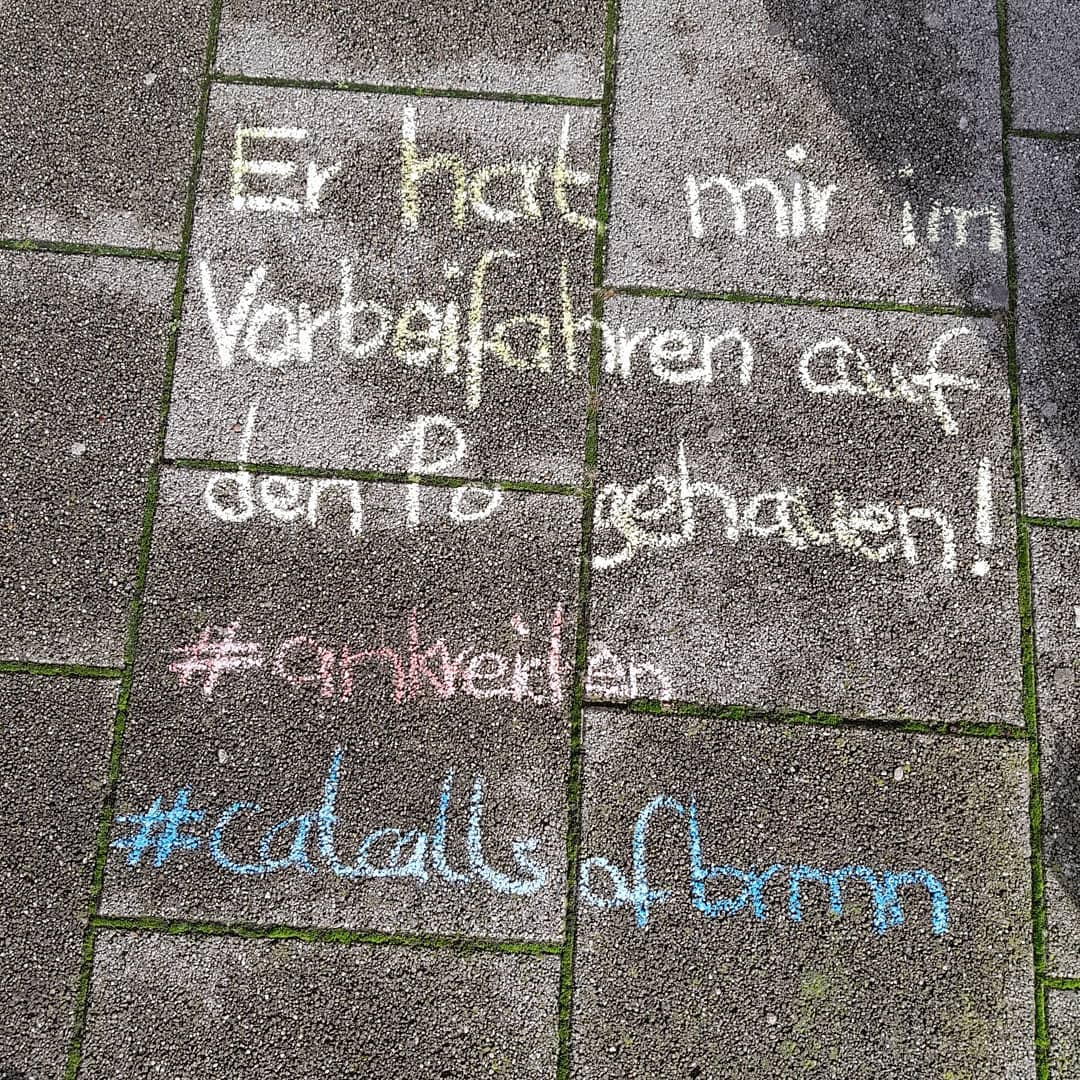 Er hat mir im
Vorbeifahren auf
den Po gehauen!
#ankreiden
#catcallsofbrmn